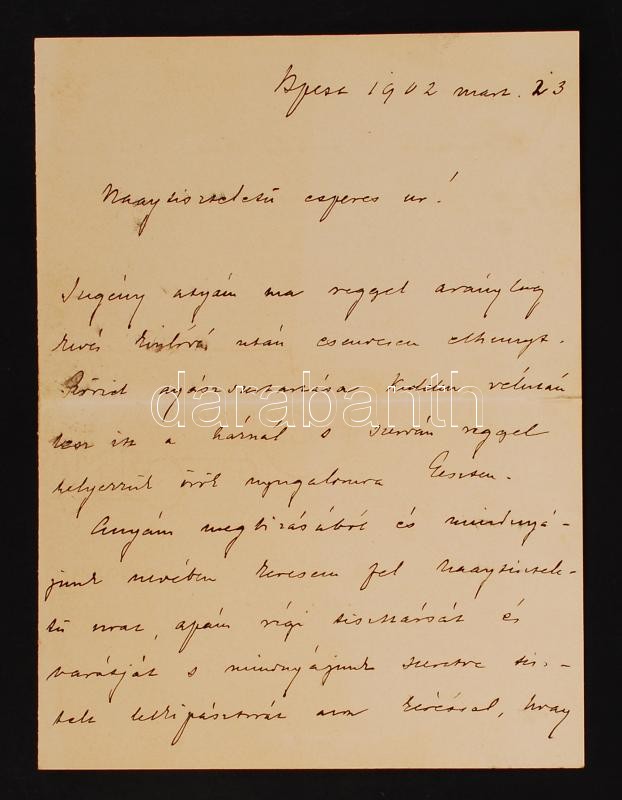 Bpest 1902 mart. 23
Nagytiszteletü esperes ur!
Szegény atyám ma reggel aránylag
kevés kínlódás után csendesen elhunyt.
Rövid gyászszertartása kedden délután
lesz itt a háznál s szerdán reggel
helyezzük örök nyugalomra Geszten.
Anyám megbizásából és mindnyá-
junk nevében keresem fel Nagytisztele-
tü urat, apám régi tiszttársát és
barátját s mindnyájunk szeretve tisz-
telt lelkipásztorát azon kéréssel, hogy
darabanth